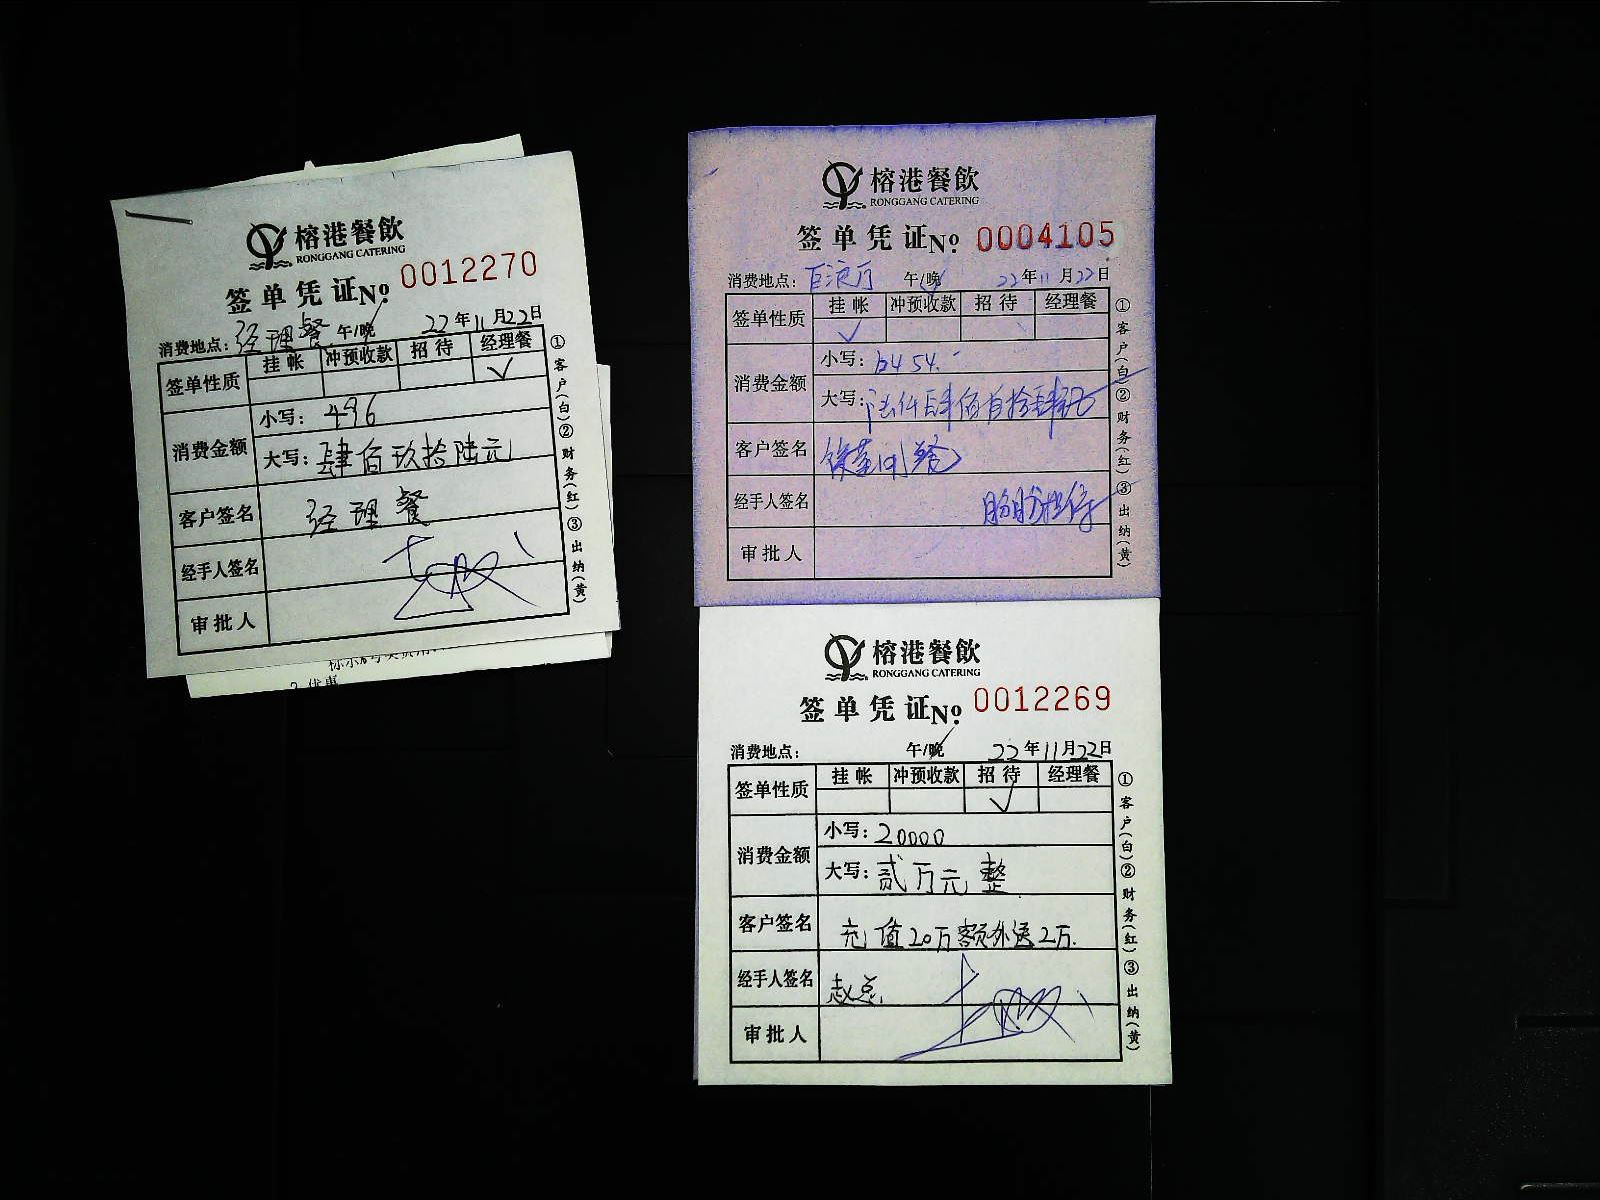 榕港餐飲
RONGGANG CATERING
签单凭证 No. 0012270
消费地点: 经理餐 午/晚 22年11月22日
签单性质 挂帐 冲预收款 招待 经理餐
✓
消费金额 小写: 496
大写: 肆佰玖拾陆元
客户签名 经理餐
经手人签名
审批人
①客户(白)②财务(红)③出纳(黄)
2 优惠
榕港餐飲
RONGGANG CATERING
签单凭证 No. 0004105
消费地点: 午/晚 22年11月22日
签单性质 挂帐 冲预收款 招待 经理餐
✓
消费金额 小写: 6454.-
大写:
客户签名
经手人签名
审批人
①客户(白)②财务(红)③出纳(黄)
榕港餐飲
RONGGANG CATERING
签单凭证 No. 0012269
消费地点: 午/晚 22年11月22日
签单性质 挂帐 冲预收款 招待 经理餐
✓
消费金额 小写: 20000
大写: 贰万元整
客户签名 充值20万额外送2万.
经手人签名 赵总
审批人
①客户(白)②财务(红)③出纳(黄)